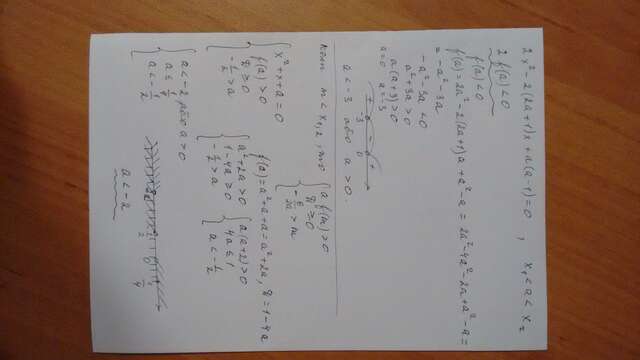 2x² - 2(2a+1)x + a(a-1) = 0 , x₁ < a < x₂
2 f(a) < 0
f(a) < 0
f(a) = 2a² - 2(2a+1)a + a² - a = 2a² - 4a² - 2a + a² - a =
= -a² - 3a
-a² - 3a < 0
a² + 3a > 0
a(a+3) > 0
a = 0 a = -3
+ - +
-3 0
a < -3 або a > 0.
коли m < x₁,₂ , то { a f(m) > 0
D ≥ 0
-b/2a > m
x² + x + a = 0
{ f(a) > 0
D ≥ 0
-1/2 > a
f(a) = a² + a + a = a² + 2a, D = 1 - 4a
{ a² + 2a > 0
1 - 4a ≥ 0
-1/2 > a
{ a(a+2) > 0
4a ≤ 1
a < -1/2
{ a < -2 або a > 0
a ≤ 1/4
a < -1/2
a < -2